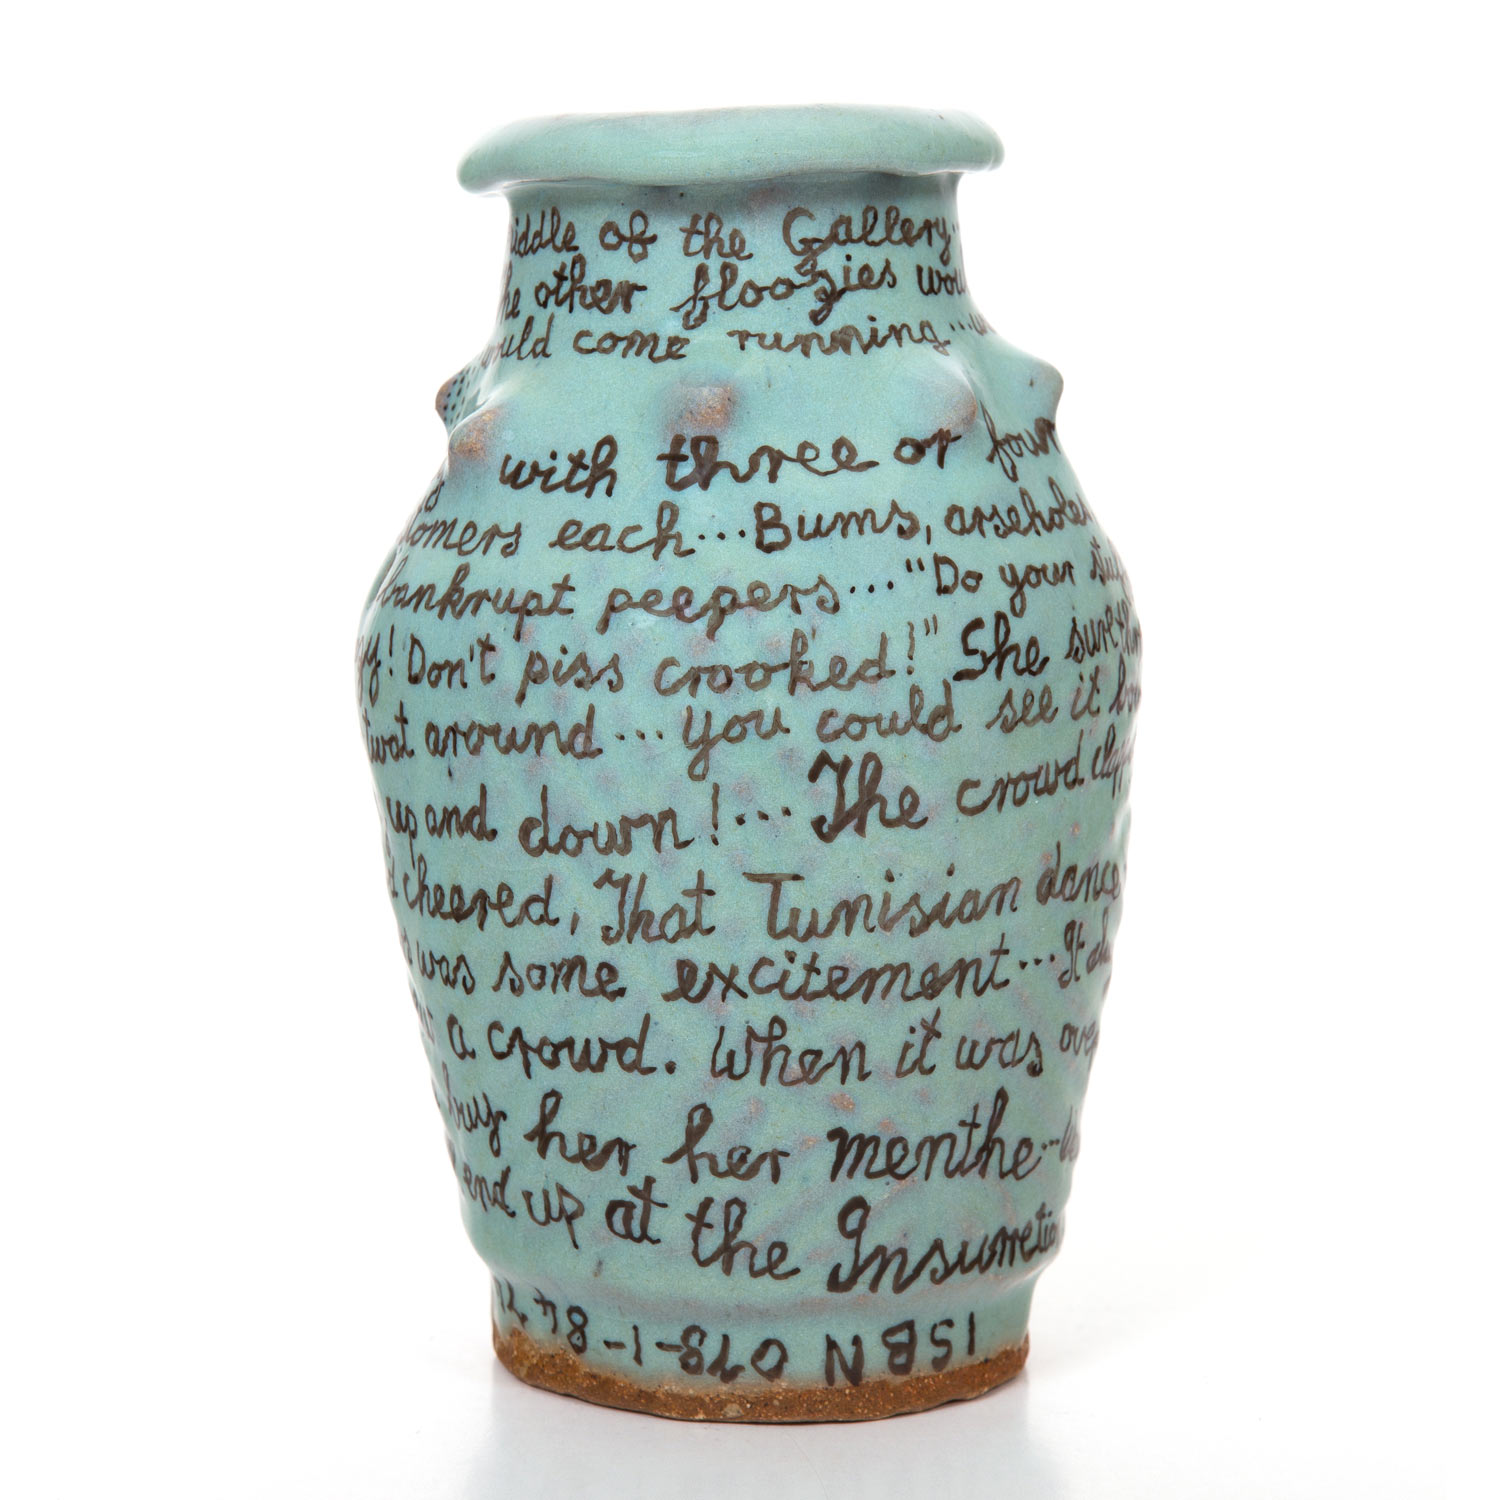 iddle of the Gallery..
he other floozies wou
ould come running...
with three or four
tomers each...Bums, arseholes
bankrupt peepers..."Do your
! Don't piss crooked!" She sure
twat around...you could see it
up and down!...The crowd
cheered, That Tunisian dance
was some excitement...It
a crowd. When it was over
buy her her menthe...
end up at the Insurretio
ISBN 078-1-84